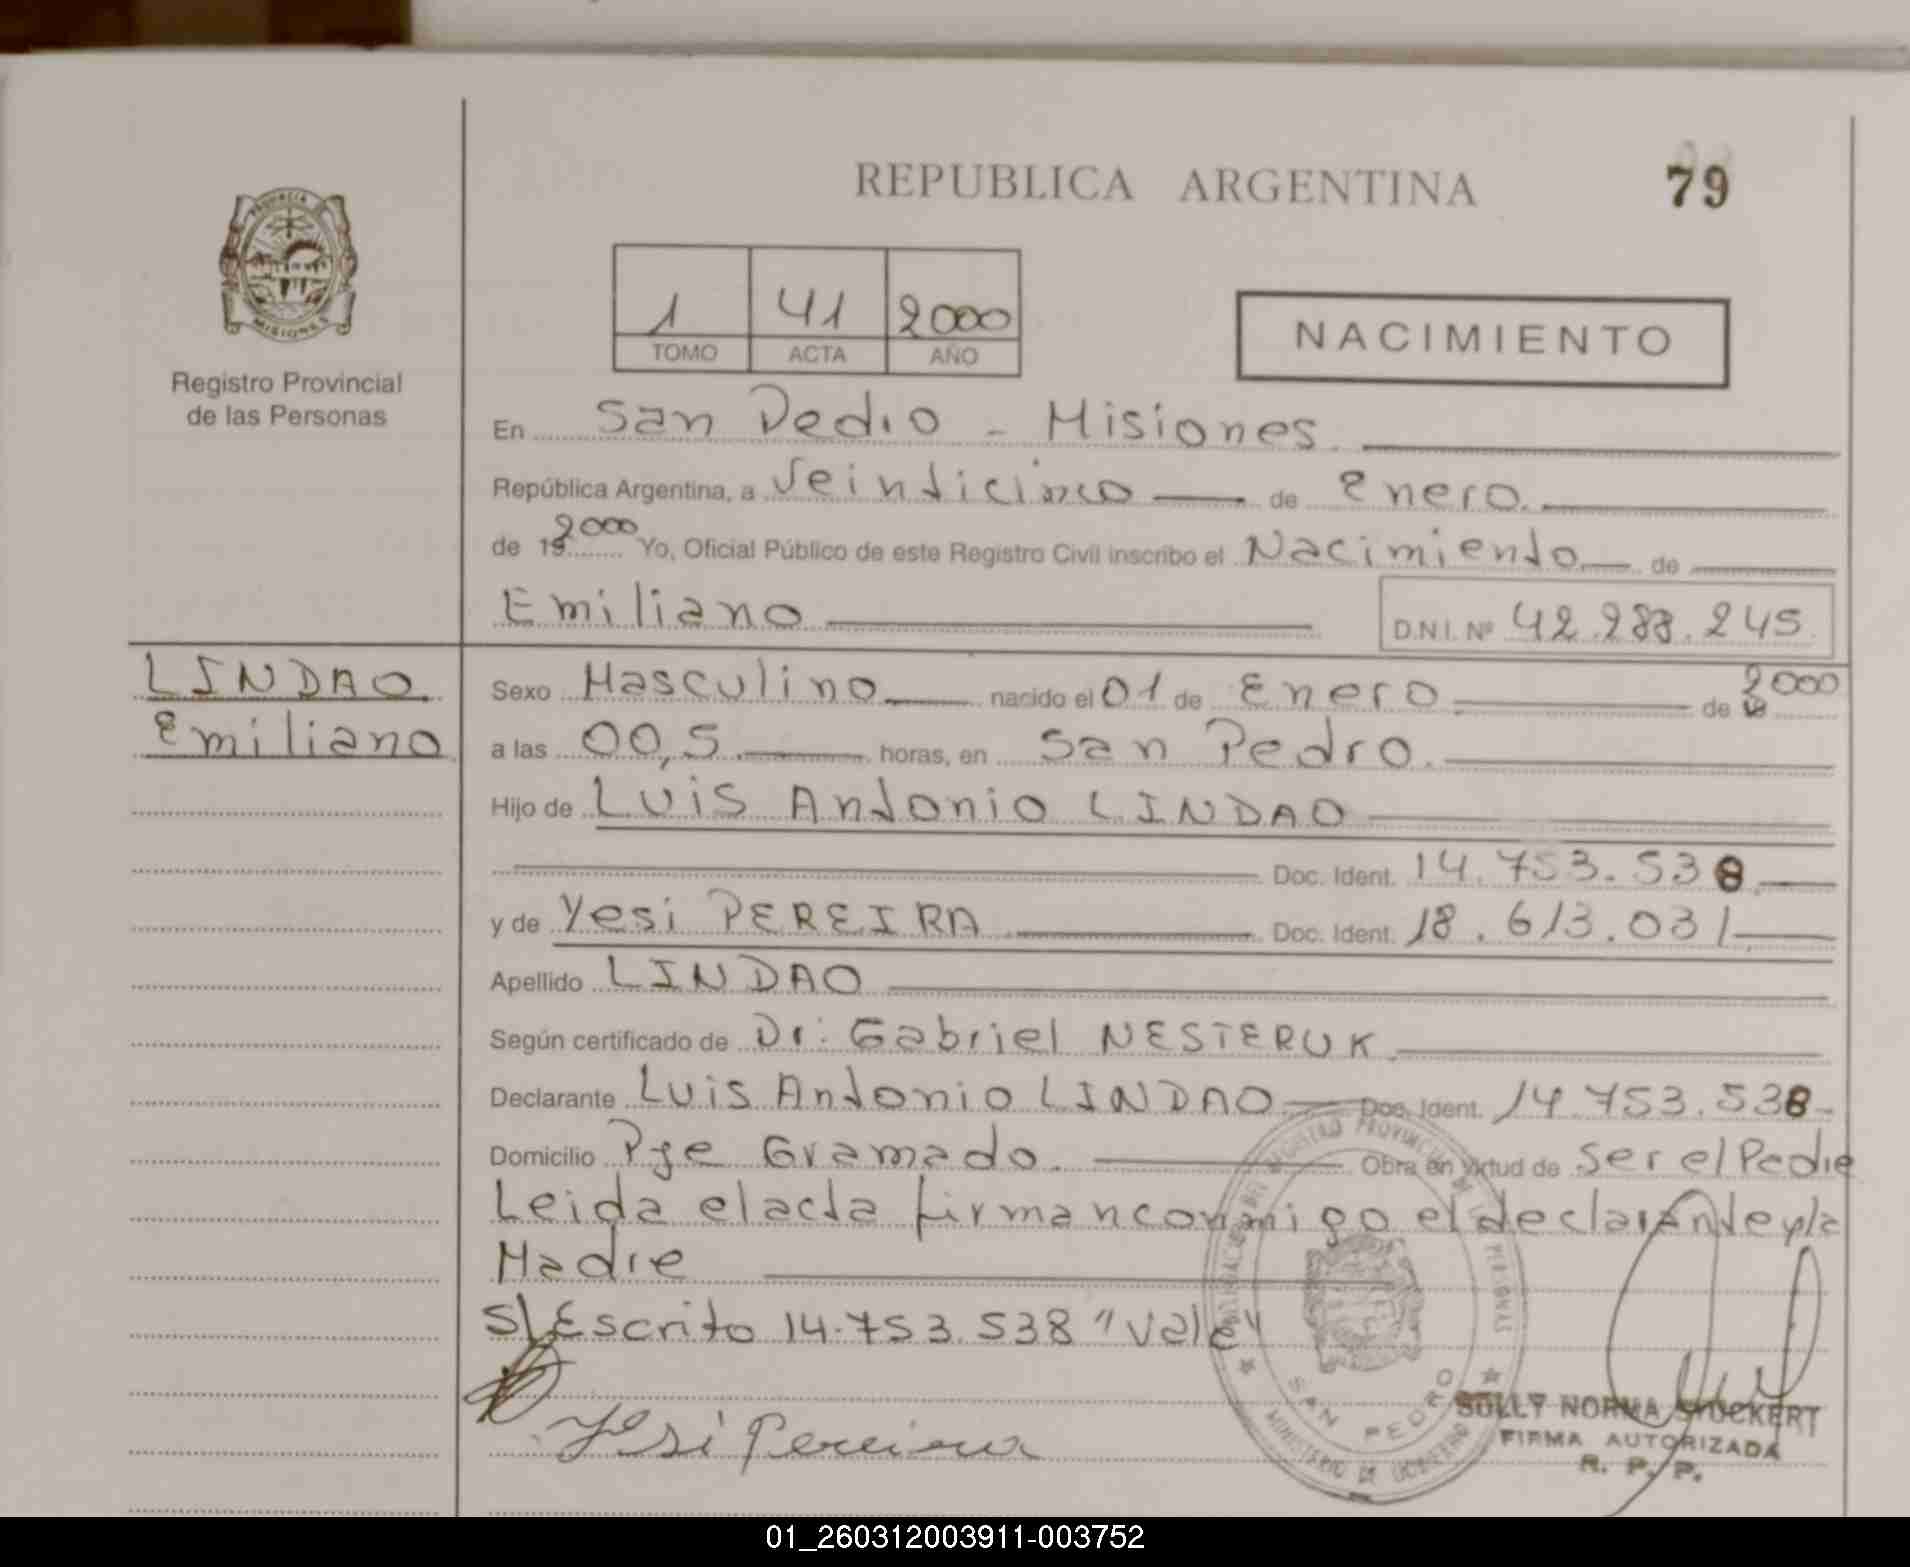 REPUBLICA ARGENTINA
79
PROVINCIA
MISIONES
Registro Provincial
de las Personas
1 41 2000
TOMO ACTA AÑO
NACIMIENTO
En San Pedro - Misiones.
República Argentina, a Veinticinco de Enero.
de 19 2000 Yo, Oficial Público de este Registro Civil inscribo el Nacimiento de
Emiliano D.N.I. Nº 42.288.245
LINDAO.
Emiliano
Sexo Masculino nacido el 01 de Enero de 2000
a las 00,5 horas, en San Pedro.
Hijo de Luis Antonio LINDAO
Doc. Ident. 14.753.538
y de Yesi PEREIRA Doc. Ident. 18.613.031
Apellido LINDAO
Según certificado de Dr: Gabriel NESTERUK
Declarante Luis Antonio LINDAO Doc. Ident. 14.753.538
Domicilio Pje Gramado. Obra en virtud de ser el Padre
Leida el acta firman conmigo el declarante y la
Madre
S/Escrito 14.753.538 "Vale"
Yesi Pereira
SAN PEDRO
MINISTERIO DE GOBIERNO
SOLLY NORMA STOCKERT
FIRMA AUTORIZADA
R. P. P.
01_260312003911-003752